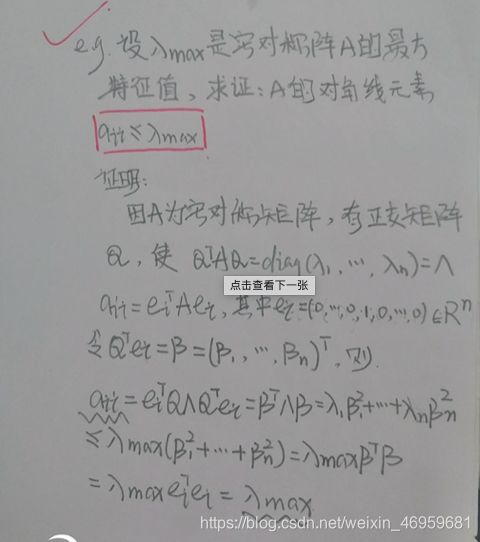 e.g. 设λmax是实对称阵A的最大
特征值，求证：A的对角线元素
aii≤λmax
证明：
因A为实对称矩阵，有正交矩阵
Q，使 QᵀAQ=diag(λ₁,…,λn)=Λ
点击查看下一张
aii=eiᵀAei，其中ei=(0,…,0,1,0,…,0)∈Rⁿ
令Qᵀei=β=(β₁,…,βn)ᵀ，则
aii=eiᵀQΛQᵀei=βᵀΛβ=λ₁β₁²+…+λnβn²
≤λmax(β₁²+…+βn²)=λmaxβᵀβ
=λmax eiᵀei=λmax
https://blog.csdn.net/weixin_46959681